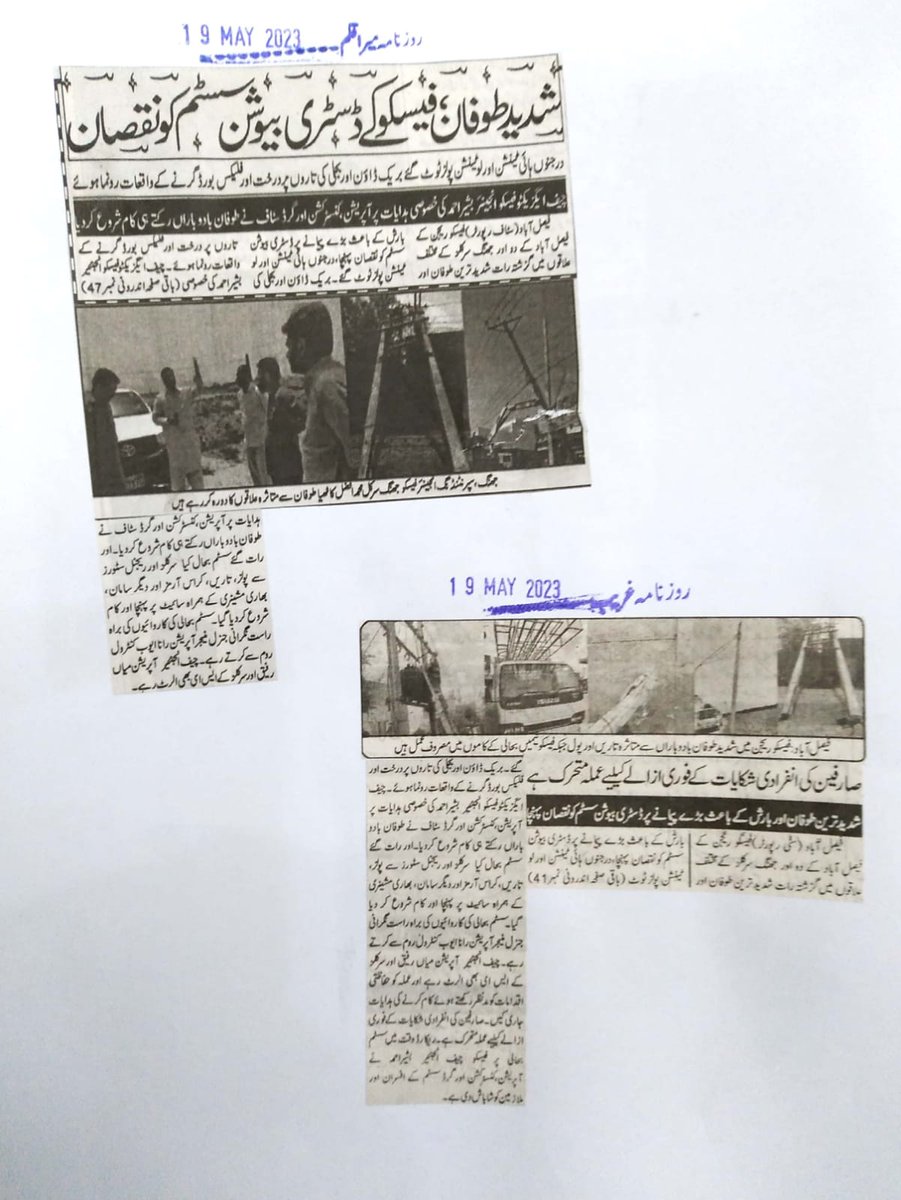 روزنامہ میرا قلم
19 MAY 2023
شدید طوفان، فیسکو کے ڈسٹری بیوشن سسٹم کو نقصان
درجنوں ہائی ٹینشن اور لو ٹینشن پولز ٹوٹ گئے بریک ڈاؤن اور بجلی کی تاروں پر درخت اور فلیکس بورڈ گرنے کے واقعات رونما ہوئے
چیف ایگزیکٹو فیسکو انجینئر بشیر احمد کی خصوصی ہدایات پر آپریشن، کنسٹرکشن اور گرڈ سٹاف نے طوفان بادوباراں رکتے ہی کام شروع کر دیا
فیصل آباد (سٹاف رپورٹر) فیسکو ریجن کے
فیصل آباد کے دو اور جھنگ سرکلز کے مختلف
علاقوں میں گزشتہ رات شدید ترین طوفان اور
بارش کے باعث بڑے پیمانے پر ڈسٹری بیوشن
سسٹم کو نقصان پہنچا، درجنوں ہائی ٹینشن اور لو
ٹینشن پولز ٹوٹ گئے۔ بریک ڈاؤن اور بجلی کی
تاروں پر درخت اور فلیکس بورڈ گرنے کے
واقعات رونما ہوئے۔ چیف ایگزیکٹو فیسکو انجینئر
بشیر احمد کی خصوصی (باقی صفحہ اندرونی نمبر 47)
جھنگ، سپرنٹنڈنگ انجینئر فیسکو جھنگ سرکل محمد افضل کاٹھیا طوفان سے متاثرہ علاقوں کا دورہ کر رہے ہیں
ہدایات پر آپریشن، کنسٹرکشن اور گرڈ سٹاف نے
طوفان بادوباراں رکتے ہی کام شروع کر دیا۔ اور
رات گئے سسٹم بحال کیا سرکلز اور ریجنل سٹورز
سے پولز، تاریں، کراس آرمز اور دیگر سامان،
بھاری مشینری کے ہمراہ سائیٹ پر پہنچا اور کام
شروع کر دیا گیا۔ سسٹم بحالی کی کاروائیوں کی براہ
راست نگرانی جنرل منیجر آپریشن رانا ایوب کنٹرول
روم سے کرتے رہے۔ چیف انجینئر آپریشن میاں
رفیق اور سرکلز کے ایس ای بھی الرٹ رہے۔
روزنامہ غریب
19 MAY 2023
فیصل آباد: فیسکو ریجن میں شدید طوفان بادوباراں سے متاثرہ تاریں اور پول جبکہ فیسکو ٹیمیں بحالی کے کاموں میں مصروف عمل ہیں
صارفین کی انفرادی شکایات کے فوری ازالے کیلیے عملہ متحرک ہے
شدید ترین طوفان اور بارش کے باعث بڑے پیمانے پر ڈسٹری بیوشن سسٹم کو نقصان پہنچا
فیصل آباد (سٹی رپورٹر) فیسکو ریجن کے
فیصل آباد کے دو اور جھنگ سرکلز کے مختلف
علاقوں میں گزشتہ رات شدید ترین طوفان اور
بارش کے باعث بڑے پیمانے پر ڈسٹری بیوشن
سسٹم کو نقصان پہنچا، درجنوں ہائی ٹینشن اور لو
ٹینشن پولز ٹوٹ (باقی صفحہ اندرونی نمبر 41)
گئے۔ بریک ڈاؤن اور بجلی کی تاروں پر درخت اور
فلیکس بورڈ گرنے کے واقعات رونما ہوئے۔ چیف
ایگزیکٹو فیسکو انجینئر بشیر احمد کی خصوصی ہدایات پر
آپریشن، کنسٹرکشن اور گرڈ سٹاف نے طوفان بادو
باراں رکتے ہی کام شروع کر دیا۔ اور رات گئے
سسٹم بحال کیا سرکلز اور ریجنل سٹورز سے پولز،
تاریں، کراس آرمز اور دیگر سامان، بھاری مشینری
کے ہمراہ سائیٹ پر پہنچا اور کام شروع کر دیا
گیا۔ سسٹم بحالی کی کاروائیوں کی براہ راست نگرانی
جنرل منیجر آپریشن رانا ایوب کنٹرول روم سے کرتے
رہے۔ چیف انجینئر آپریشن میاں رفیق اور سرکلز
کے ایس ای بھی الرٹ رہے اور عملہ کو حفاظتی
اقدامات کو مدنظر رکھتے ہوئے کام کرنے کی ہدایات
جاری کیں۔ صارفین کی انفرادی شکایات کے فوری
ازالے کیلیے عملہ متحرک ہے۔ ریکارڈ وقت میں سسٹم
بحالی پر فیسکو چیف انجینئر بشیر احمد نے
آپریشن، کنسٹرکشن اور گرڈ سسٹم کے افسران اور
ملازمین کو شاباش دی ہے۔